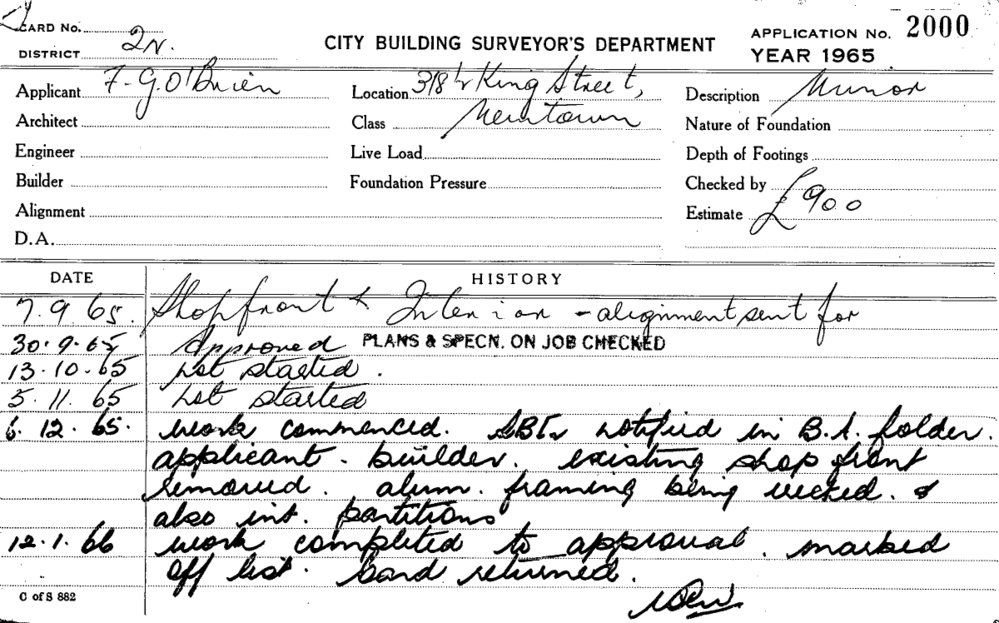 CARD No.
DISTRICT 2N.
CITY BUILDING SURVEYOR'S DEPARTMENT
APPLICATION No. 2000
YEAR 1965
Applicant F. G. O'Brien
Location 318 King Street,
Description Minor
Architect
Class Newtown
Nature of Foundation
Engineer
Live Load
Depth of Footings
Builder
Foundation Pressure
Checked by
Alignment
Estimate £900
D.A.
DATE HISTORY
7.9.65. Shopfront & Interior - alignment sent for
30.9.65 Approved PLANS & SPECN. ON JOB CHECKED
13.10.65 not started.
5.11.65 not started
6.12.65. work commenced. notified in B.A. folder.
applicant. builder. existing shop front
removed. alum. framing being &
also int. partitions
12.1.66 work completed to approval. marked
off list. Card returned.
C of S 882